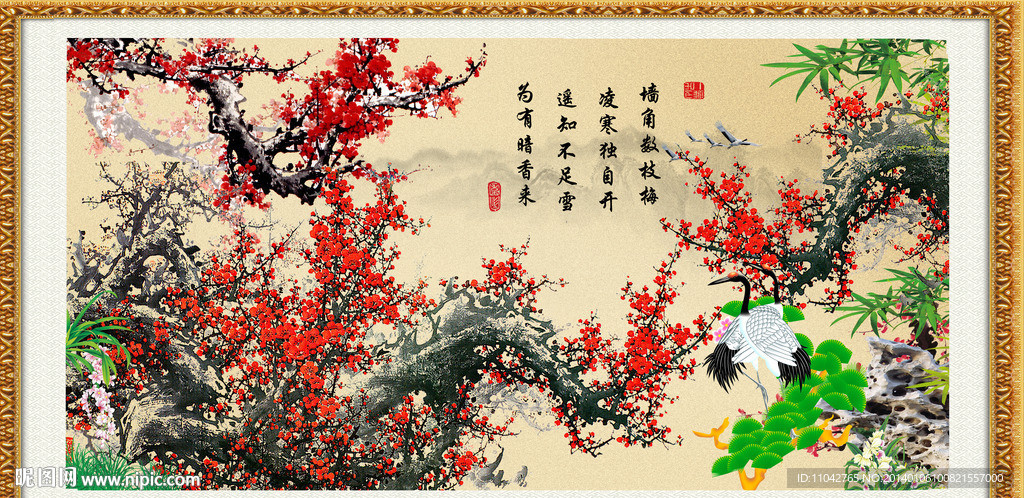 墙角数枝梅
凌寒独自开
遥知不足雪
为有暗香来
昵图网 www.nipic.com
ID:11042765 NO:20140106100821557000